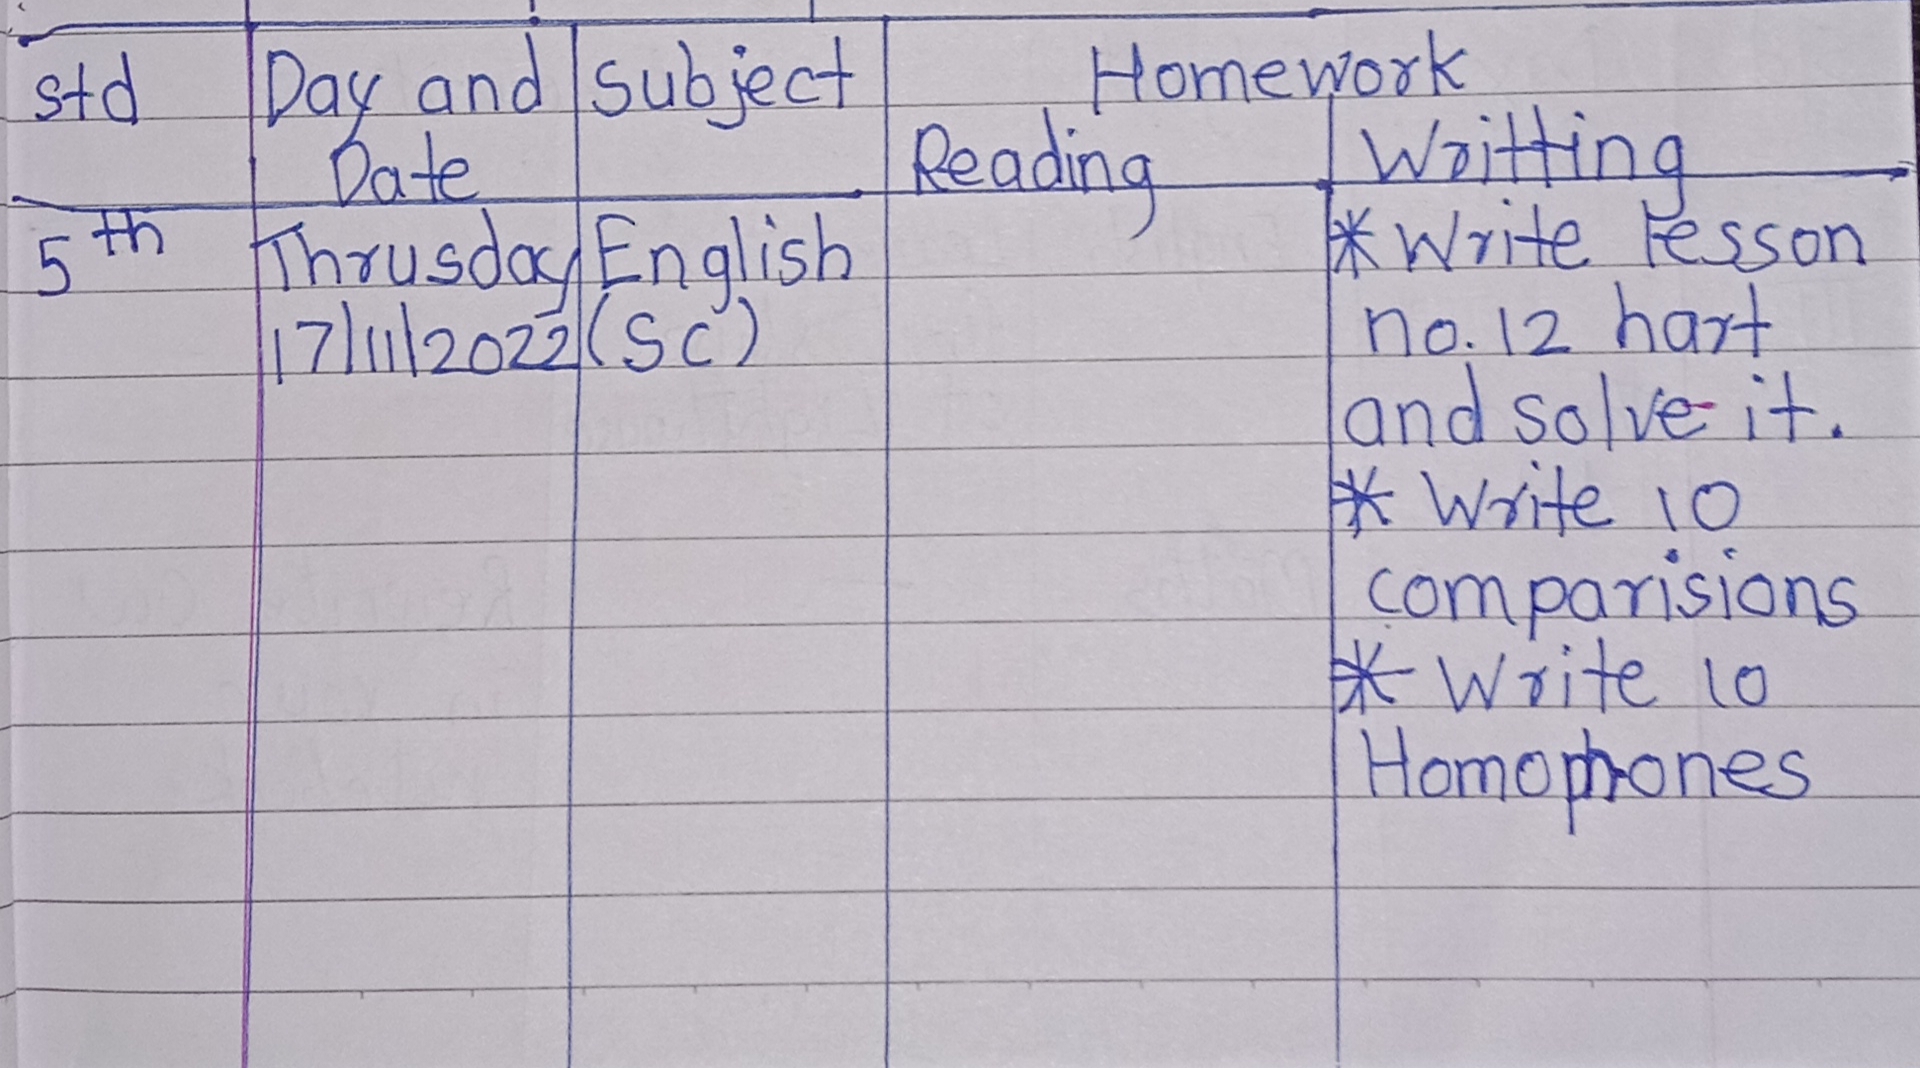 std Day and Subject Homework
Date Reading Writting
5th Thrusday English * Write lesson
17/11/2022 (SC) no. 12 hart
and solve it.
* Write 10
comparisions
* Write 10
Homophones